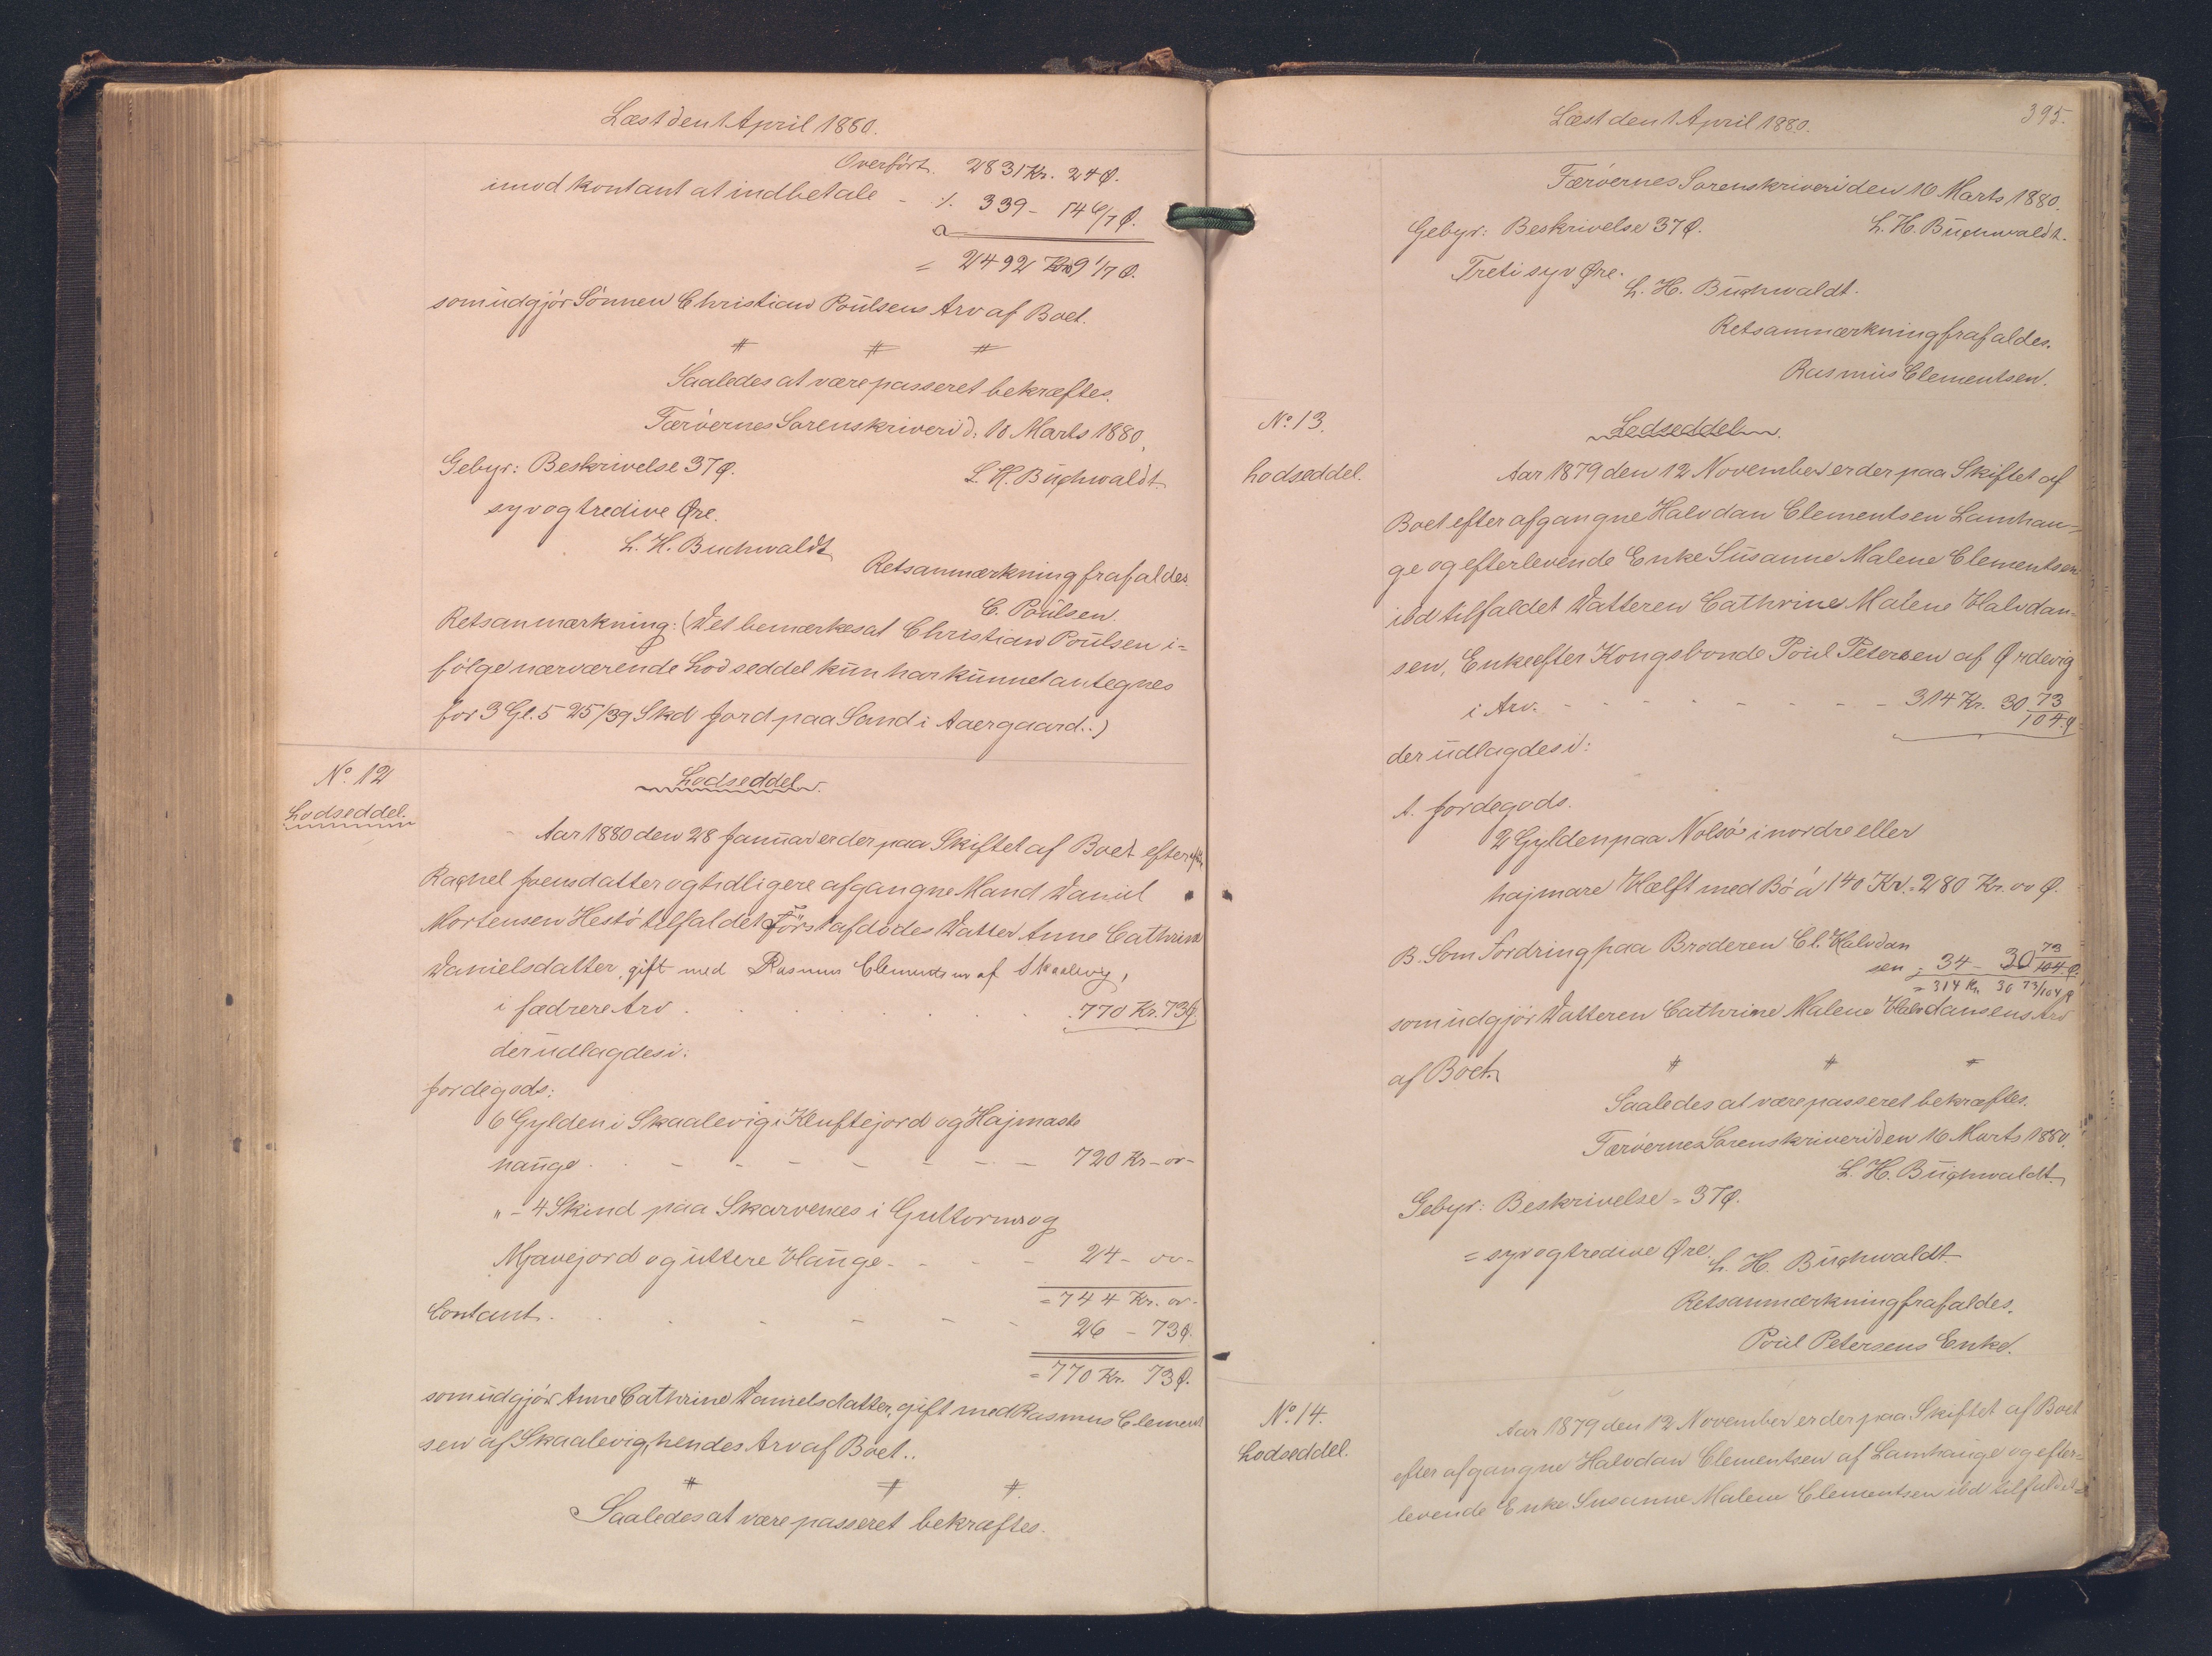 Læst den 1 April 1880.
Overført. 2831 Kr. 24 Ø.
imod kontant at indbetale - ./. 339 - 14 6/7 Ø.
= 2492 Kr. 9 1/7 Ø.
som udgjør Sønnen Christian Poulsens Arv af Boet.
# # #
Saaledes at være passeret bekræftes.
Færøernes Sorenskriveri d: 10 Marts 1880.
Gebyr: Beskrivelse 37 Ø. L. H. Buchwaldt
syv og tredive Øre.
L. H. Buchwaldt
Retsanmærkning frafaldes
C. Poulsen.
Retsanmærkning: (Det bemærkes at Christian Poulsen i=
følge nærværende Lodseddel kun har kunnet antegnes
for 3 Gl. 5 25/39 Skd Jord paa Sand i Aaergaard..)
No. 12
Lodseddel.
Lodseddel.
Aar 1880 den 28 Januar er der paa Skiftet af Boet efter
Rachel Joensdatter og tidligere afgangne Mand Daniel
Mortensen Hestø tilfaldet Førstafdødes Datter Anne Cathrine
Danielsdatter, gift med Rasmus Clementsen af Skaalevig,
i fædrere Arv . . . . . 770 Kr. 73 Ø.
der udlagdes i:
Jordegods:
6 Gylden i Skaalevig i Kluftejord og Hajmaste
hauge . - - - - - - - 720 Kr - oo -
" - 4 Skind paa Skarvenæs i Guttorms og
Mjavejord og uttere Hauge - - - - 24 - oo -
= 744 Kr. oo -
Contant. . . - - - - 26 - 73 Ø.
= 770 Kr. 73 Ø.
som udgjør Anne Cathrine Danielsdatter, gift med Rasmus Clement
sen af Skaalevig, hendes Arv af Boet..
# # #
Saaledes at være passeret bekræftes.
Læst den 1 April 1880.
395.
Færøernes Sorenskriveri den 16 Marts 1880.
Gebyr: Beskrivelse 37 Ø. L. H. Buchwaldt.
Treti syv Øre.
L. H. Buchwaldt.
Retsanmærkning frafaldes.
Rasmus Clementsen.
No. 13.
Lodseddel.
Lodseddel.
Aar 1879 den 12 November er der paa Skiftet af
Boet efter afgangne Halvdan Clementsen Lamhau=
ge og efterlevende Enke Susanne Malene Clementsen
ibd tilfaldet Datteren Cathrine Malene Halvdan-
sen, Enke efter Kongsbonde Poul Petersen af Ørdevig
i Arv. - - - - - - - 314 Kr. 30 73/104 Ø
der udlagdes i:
A. Jordegods.
2 Gylden paa Nolsø i nordre eller
hajmare Hælft med Bø á 140 Kr. = 280 Kr. oo Ø.
B. Som Fordring paa Broderen Cl. Halvdan
sen ; 34 - 30 73/104 Ø.
= 314 Kr. 30 73/104 Ø
som udgjør Datteren Cathrine Malene Halvdansens Arv
af Boet.
# # #
Saaledes at være passeret bekræftes.
Færøernes Sorenskriveri den 16 Marts 1880.
L. H. Buchwaldt.
Gebyr: Beskrivelse = 37 Ø.
= syv og tredive Øre.
L. H. Buchwaldt
Retsanmærkning frafaldes.
Poul Petersens Enke.
No. 14.
Lodseddel.
Aar 1879 den 12 November er der paa Skiftet af Boet
efter afgangne Halvdan Clementsen af Lamhauge og efter=
levende Enke Susanne Malene Clementsen ibd tilfaldet=